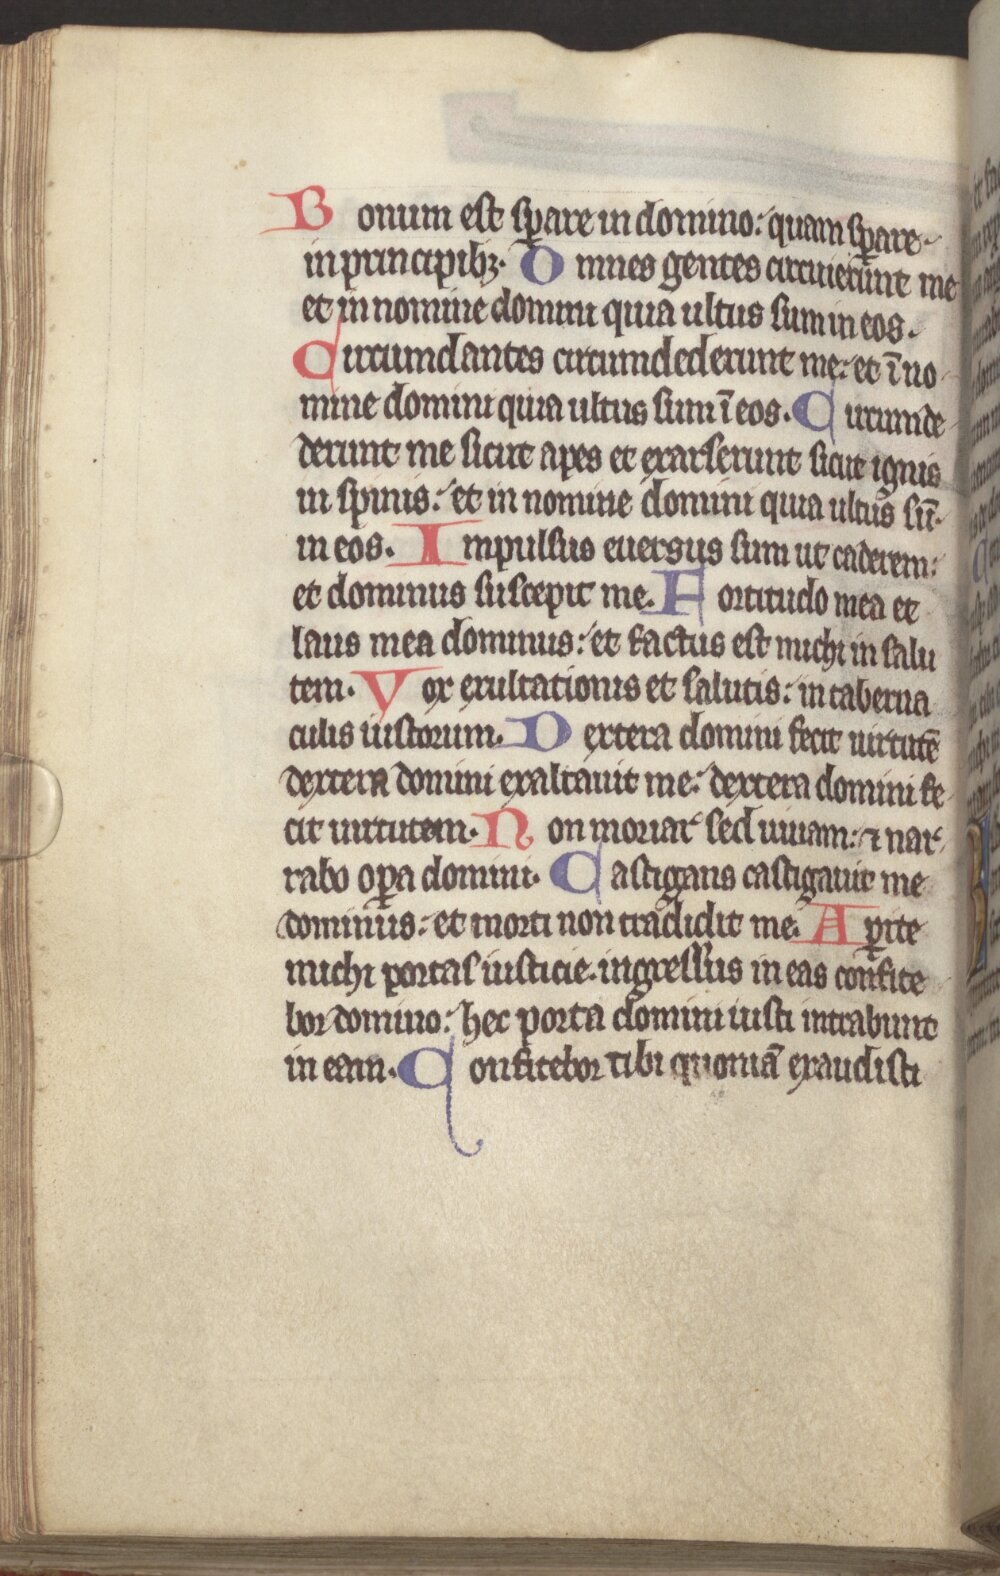 Bonum est sꝑare in domino: quam sꝑare
in principibꝫ. Omnes gentes circuierunt me
et in nomine domini quia ultus sum in eos.
Circumdantes circumdederunt me: et ī no
mine domini quia ultus sum ī eos. Circumde
derunt me sicut apes et exarserunt sicut ignis
in spinis: et in nomine domini quia ultus sū
in eos. Impulsus euersus sum ut caderem:
et dominus suscepit me. Fortitudo mea et
laus mea dominus: et factus est michi in salu
tem. Vox exultationis et salutis: in taberna
culis iustorum. Dextera domini fecit uirtutē
dextera domini exaltauit me: dextera domini fe
cit uirtutem. Non moriar sed uiuam: ⁊ nar
rabo oꝑa domini. Castigans castigauit me
dominus: et morti non tradidit me. Aꝑite
michi portas iusticie. ingressus in eas confite
bor domino: hec porta domini iusti intrabunt
in eam. Confitebor tibi quoniā exaudisti